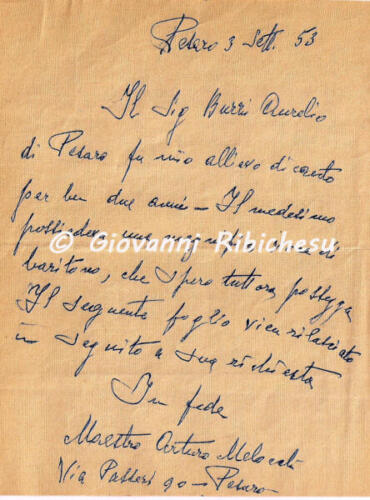 Pesaro 3 Sett. 53
Il Sig Burri Aurelio
di Pesaro fu mio allievo di canto
per ben due anni – Il medesimo
possedeva una magnifica voce di
© Giovanni Ribichesu
baritono, che spero tuttora possegga
Il seguente foglio vien rilasciato
in seguito a sua richiesta
In fede
Maestro Arturo Melocchi
Via Passeri 90 – Pesaro